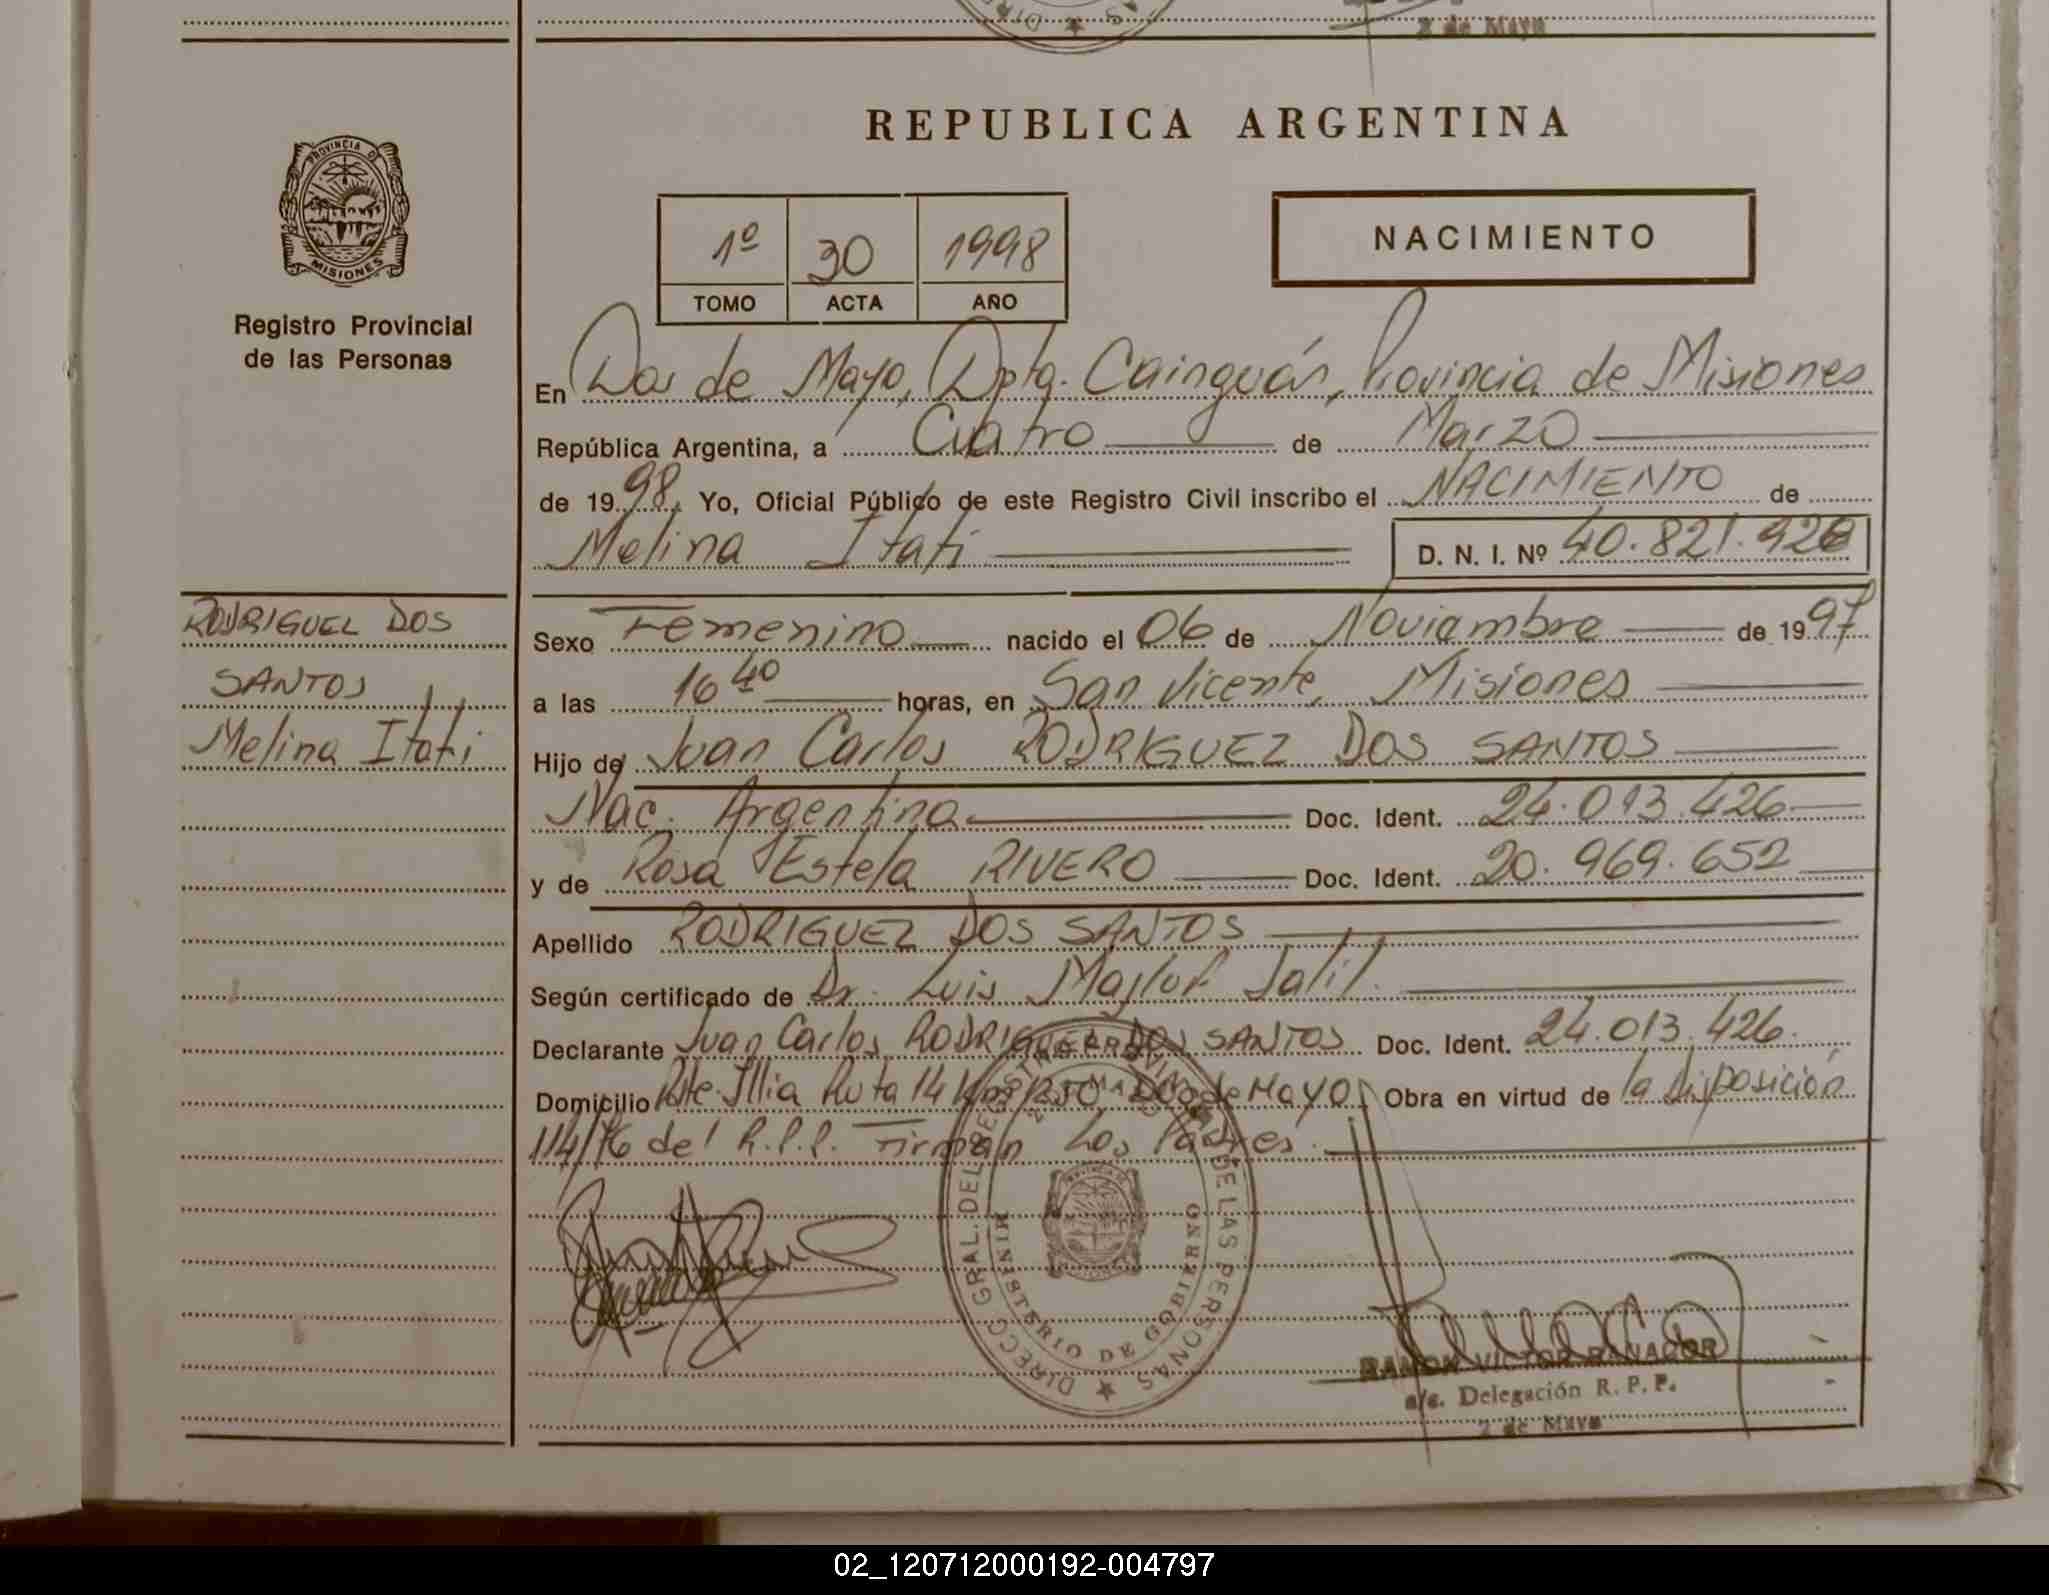 2 de Mayo
PROVINCIA DE
MISIONES
Registro Provincial
de las Personas
RODRIGUEZ DOS
SANTOS
Melina Itati
REPUBLICA ARGENTINA
1º 30 1998
TOMO ACTA AÑO
NACIMIENTO
En Dos de Mayo, Dpto. Cainguás, Provincia de Misiones
República Argentina, a Cuatro de Marzo
de 1998, Yo, Oficial Público de este Registro Civil inscribo el NACIMIENTO de
Melina Itati D. N. I. Nº 40.821.926
Sexo Femenino nacido el 06 de Noviembre de 1997
a las 16 40 horas, en San Vicente, Misiones
Hijo de Juan Carlos RODRIGUEZ DOS SANTOS
Nac. Argentina Doc. Ident. 24.013.426
y de Rosa Estela RIVERO Doc. Ident. 20.969.652
Apellido RODRIGUEZ DOS SANTOS
Según certificado de Dr. Luis Majluf Jalil.
Declarante Juan Carlos RODRIGUEZ DOS SANTOS Doc. Ident. 24.013.426.
Domicilio Pte. Illia Ruta 14 Km 1250 Dos de MAYO Obra en virtud de la disposición
114/76 del R.P.P. Firman Los Padres.
DIRECC GRAL. DEL REGISTRO PROVINCIAL DE LAS PERSONAS
MINISTERIO DE GOBIERNO
RAMON VICTOR BANACOR
a/c. Delegación R. P. P.
2 de Mayo
02_120712000192-004797